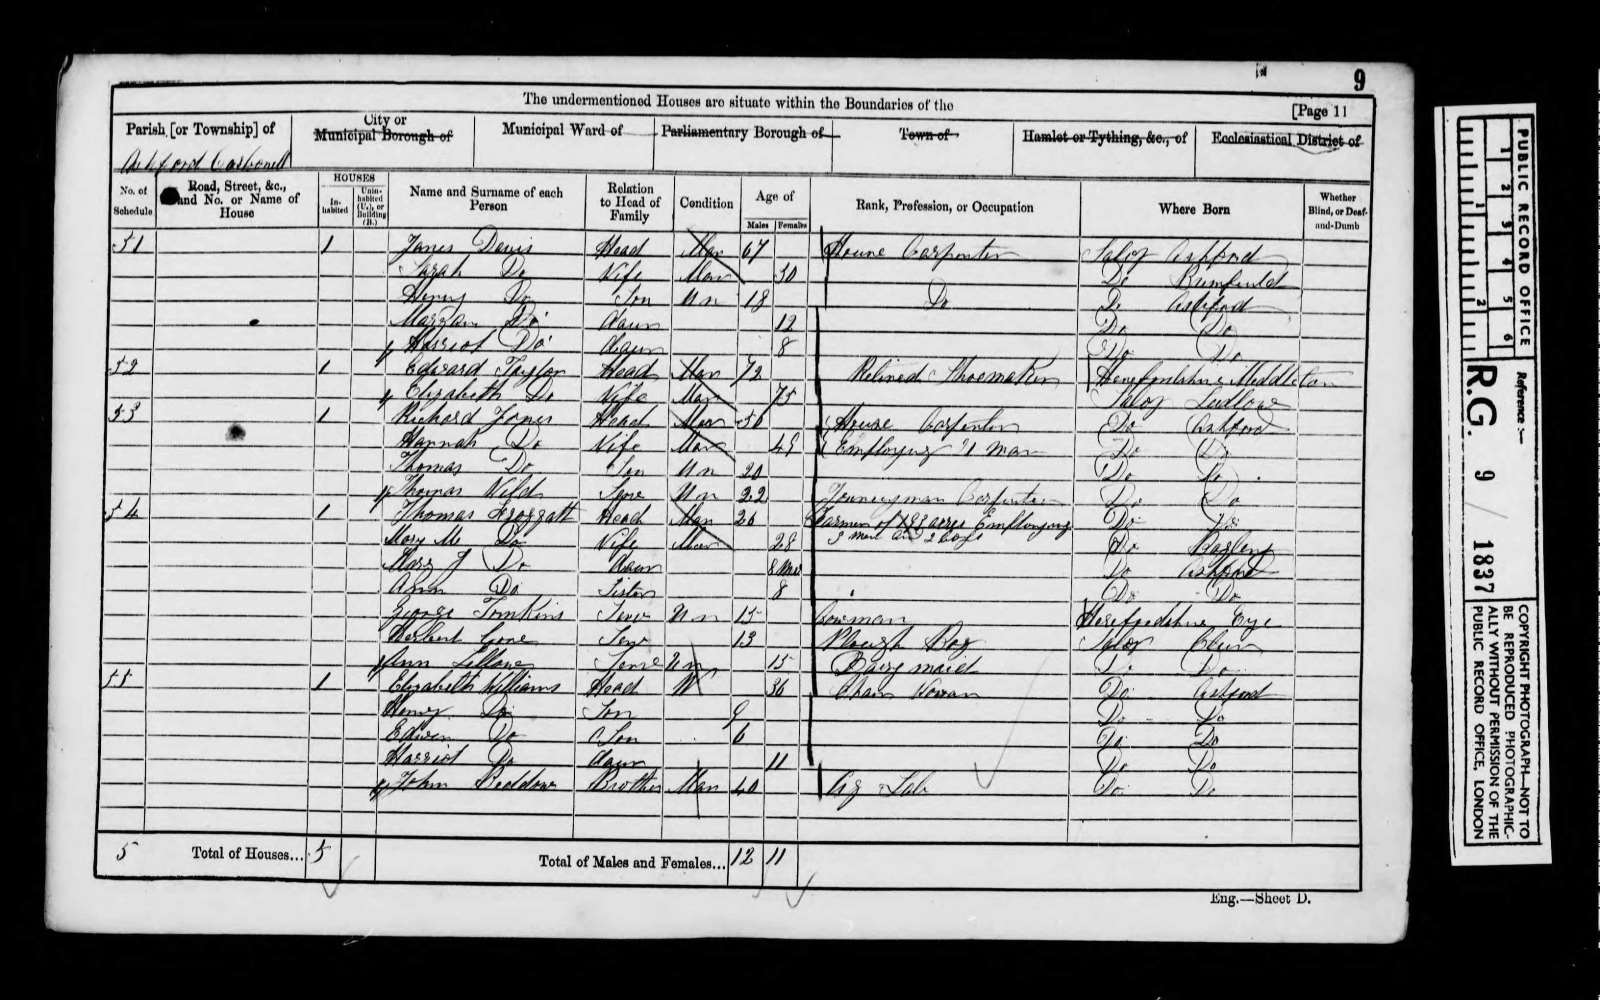 9
The undermentioned Houses are situate within the Boundaries of the
[Page 11
Parish [or Township] of
City or
Municipal Borough of
Municipal Ward of
Parliamentary Borough of
Town of
Hamlet or Tything, &c., of
Ecclesiastical District of
Ashford Carbonell
No. of Schedule
Road, Street, &c., and No. or Name of House
HOUSES
Inhabited
Uninhabited (U.), or Building (B.)
Name and Surname of each Person
Relation to Head of Family
Condition
Age of
Males
Females
Rank, Profession, or Occupation
Where Born
Whether Blind, or Deaf-and-Dumb
51 1 James Davis Head Mar 67 House Carpenter Salop Ashford
Sarah Do Wife Mar 50 Do
Henry Do Son Un 18 Do Do Ashford
Do Daur 12 Do Do
Harriot Do Daur 8 Do Do
52 1 Edward Taylor Head Mar 72 Retired Shoemaker Herefordshire Middleton
Elizabeth Do Wife Mar 75 Salop Ludlow
53 1 Richard Jones Head Mar 50 House Carpenter Do Ashford
Hannah Do Wife Mar 48 Employing 1 man Do Do
Thomas Do Son Un 20 Do Do
Thomas Serve Un 22 Journeyman Carpenter Do Do
54 1 Thomas Head Mar 26 Farmer of acres Employing Do Do
3 men and 2 boys
Mary M Do Wife Mar 28 Do
Mary J Do Daur 8 Mos Do Ashford
Ann Do Sister 8 Do Do
George Tomkins Serv Un 15 Cowman Herefordshire Eye
Herbert Gore Serv 13 Plough Boy Salop
Ann Serve Un 15 Dairy maid Do Do
55 1 Elizabeth Williams Head W 36 Chair Woman Do Ashford
Henry Do Son 9 Do Do
Edwin Do Son 6 Do Do
Harriot Do Daur 11 Do Do
John Beddow Brother Mar 40 Ag Lab Do Do
5 Total of Houses... 5 Total of Males and Females... 12 11
Eng.—Sheet D.
PUBLIC RECORD OFFICE
1 2 3 4 5 6
1 2
Reference :—
R.G. 9 / 1837
COPYRIGHT PHOTOGRAPH—NOT TO
BE REPRODUCED PHOTOGRAPHIC-
ALLY WITHOUT PERMISSION OF THE
PUBLIC RECORD OFFICE, LONDON